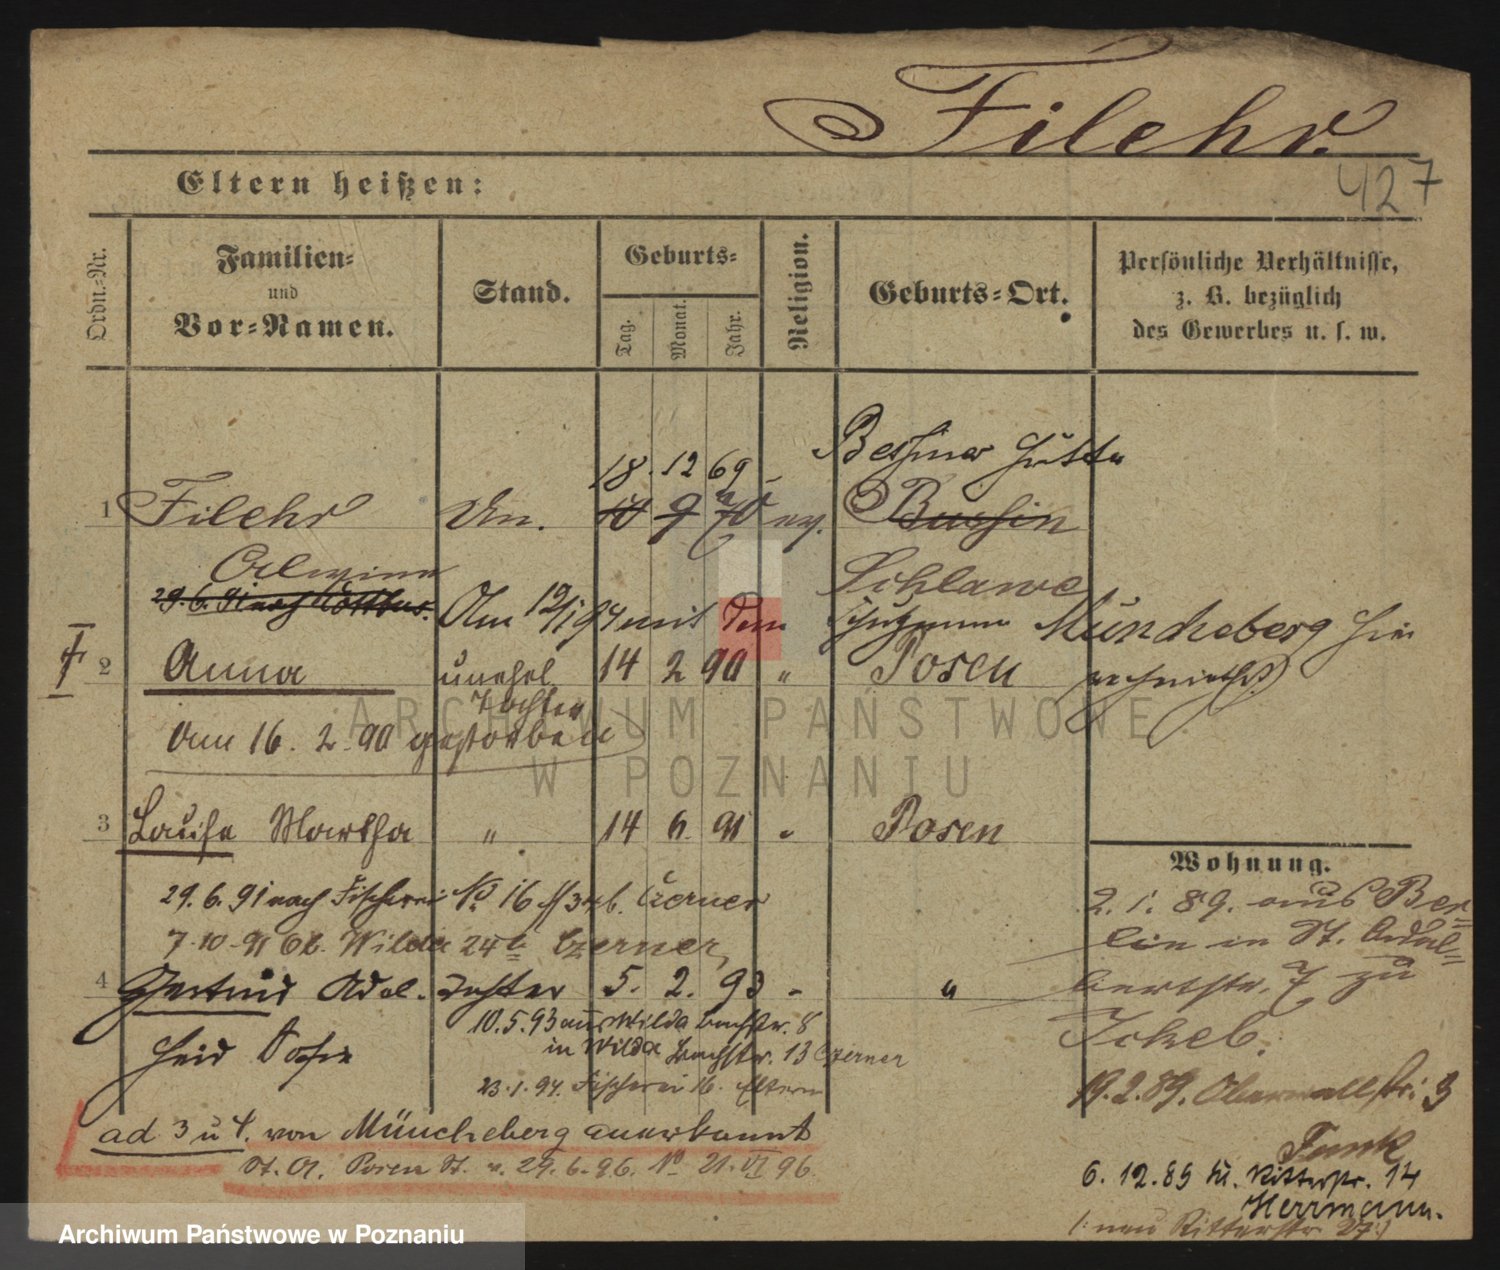 Filehr.
427
Eltern heißen:
Ordn.-Nr.
Familien- und Vor-Namen.
Stand.
Geburts-
Tag.
Monat.
Jahr.
Religion.
Geburts-Ort.
Persönliche Verhältnisse, z. B. bezüglich des Gewerbes u. s. w.
18. 12 69
Hütte
1 Filehr Un. 10 9 70 ev. Bussin
Schlawe
29.6.91 nach
Am 12/1 94 mit dem Schutzmann Müncheberg hier
2 Anna unehel. 14 2 90 " Posen
Tochter
Am 16. 2. 90 gestorben
3 Louise Martha " 14 6. 91 " Posen
29.6.91 nach Fischerei No 16 b. Czerner
7.10.91 Ob. Wilda 24a Czerner
4 Gertrud Adel- Tochter 5. 2. 93 " "
heid
10.5.93 aus Wilda Bachstr. 8
in Wilda Bachstr. 13 Czerner
23.1.94. Fischerei 16. Eltern
ad 3 u 4. von Müncheberg anerkannt
St. A. Posen St. v. 29.6.96. No 21. VI 96.
Wohnung.
2. 1. 89. aus Ber-
lin in St. Adal-
bertstr. 7 zu
Ickeb.
19.2.89. Oberwallstr. 3
Funk
6. 12. 89 Kl. Ritterstr. 14
Herrmann.
(: neu Ritterstr 27 :)
ARCHIWUM PAŃSTWOWE
W POZNANIU
Archiwum Państwowe w Poznaniu